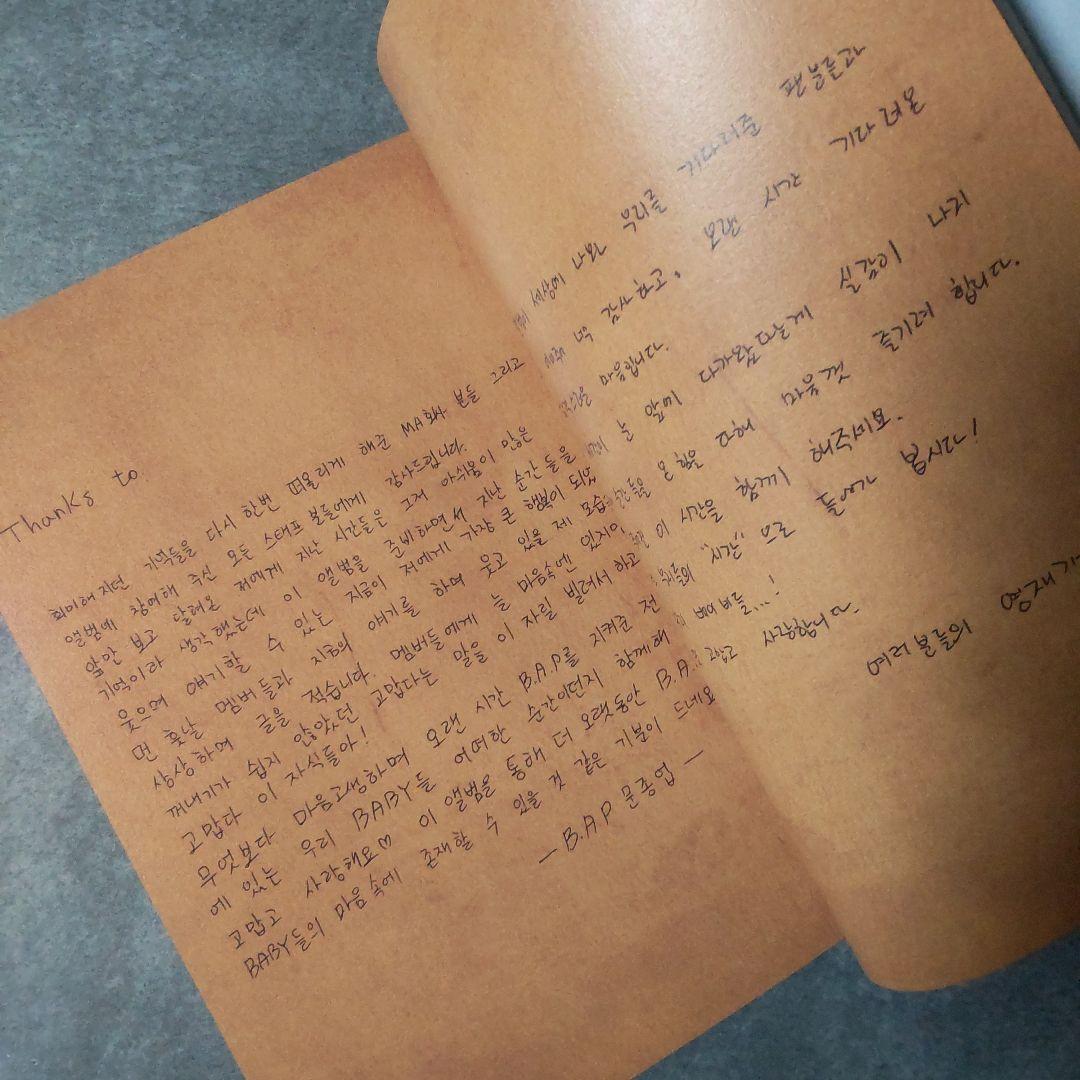 Thanks to.
희미해지던 기억들을 다시 한번 떠올리게 해준 MA회사 분들 그리고
앨범에 참여해 주신 모든 스태프 분들에게 감사드립니다.
앞만 보고 달려온 저에게 지난 시간들은 그저 아쉬움이 많은
기억이라 생각했는데 이 앨범을 준비하면서 지난 순간들을
웃으며 얘기할 수 있는 지금이 저에게 가장 큰 행복이 되었
먼 훗날 멤버들과 지금의 얘기를 하며 웃고 있을 제 모습
상상하며 글을 적습니다. 멤버들에게 늘 마음속엔 있지만
꺼내기가 쉽지 않았던 고맙다는 말을 이 자릴 빌려서 하고
고맙다 이 자식들아!
무엇보다 마음고생하며 오랜 시간 B.A.P를 지켜준 전
에 있는 우리 BABY들 어떠한 순간이던지 함께해
고맙고 사랑해요♡ 이 앨범을 통해 더 오랫동안 B.A.
BABY들의 마음속에 존재할 수 있을 것 같은 기분이 드네요
— B.A.P 문종업 —
세상에 나와 우리를 기다려준 팬분들과
감사하고, 오랜 시간 기다려온
마음입니다.
늘 앞에 다가왔다는게 실감이 나지
온 힘을 다해 마음껏 즐기려 합니다.
이 시간을 함께 해주세요.
"시간"으로 들어가 봅시다!
베이비들...!
고맙고 사랑합니다.
여러분들의 영재가